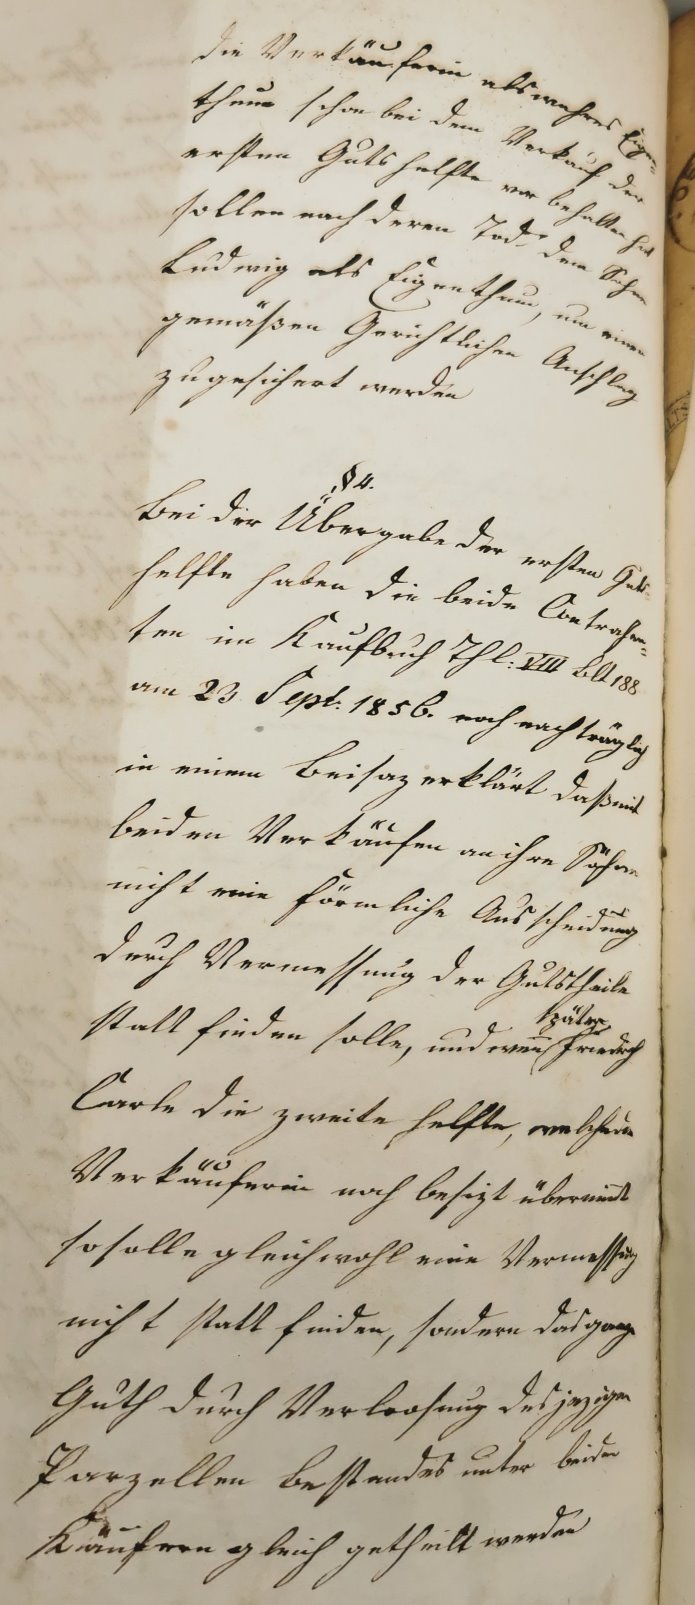 die Verkäuferin als wahres Eigen-
thum schon bei dem Verkauf der
ersten Guts helfte vor behalten hat
sollen nach deren Tod dem Sohn
Ludwig als Eigenthum, um einen
gemäßen Gerichtlichen Anschlag
zugesichert werden
§ 4.
Bei der Übergabe der ersten Guts-
helfte haben die beide Contrahen-
ten im Kaufbuch Thl: VIII Blt 188
am 23 Sept: 1856. noch nachträglich
in einem Beisaz erklärt daß mit
beiden Verkäufen an ihre Söhne
nicht eine förmliche Ausscheidung
durch Vermessung der Gutstheile
statt finden solle, und wenn später Friedrich
Carle die zweite helfte, welche die
Verkäuferin noch besizt übernimt
so solle gleichwohl eine Vermessung
nicht statt finden, sondern das ganze
Guth durch Verloosung des jezigen
Parzellen bestandes unter beiden
Käufern gleich getheilt werden